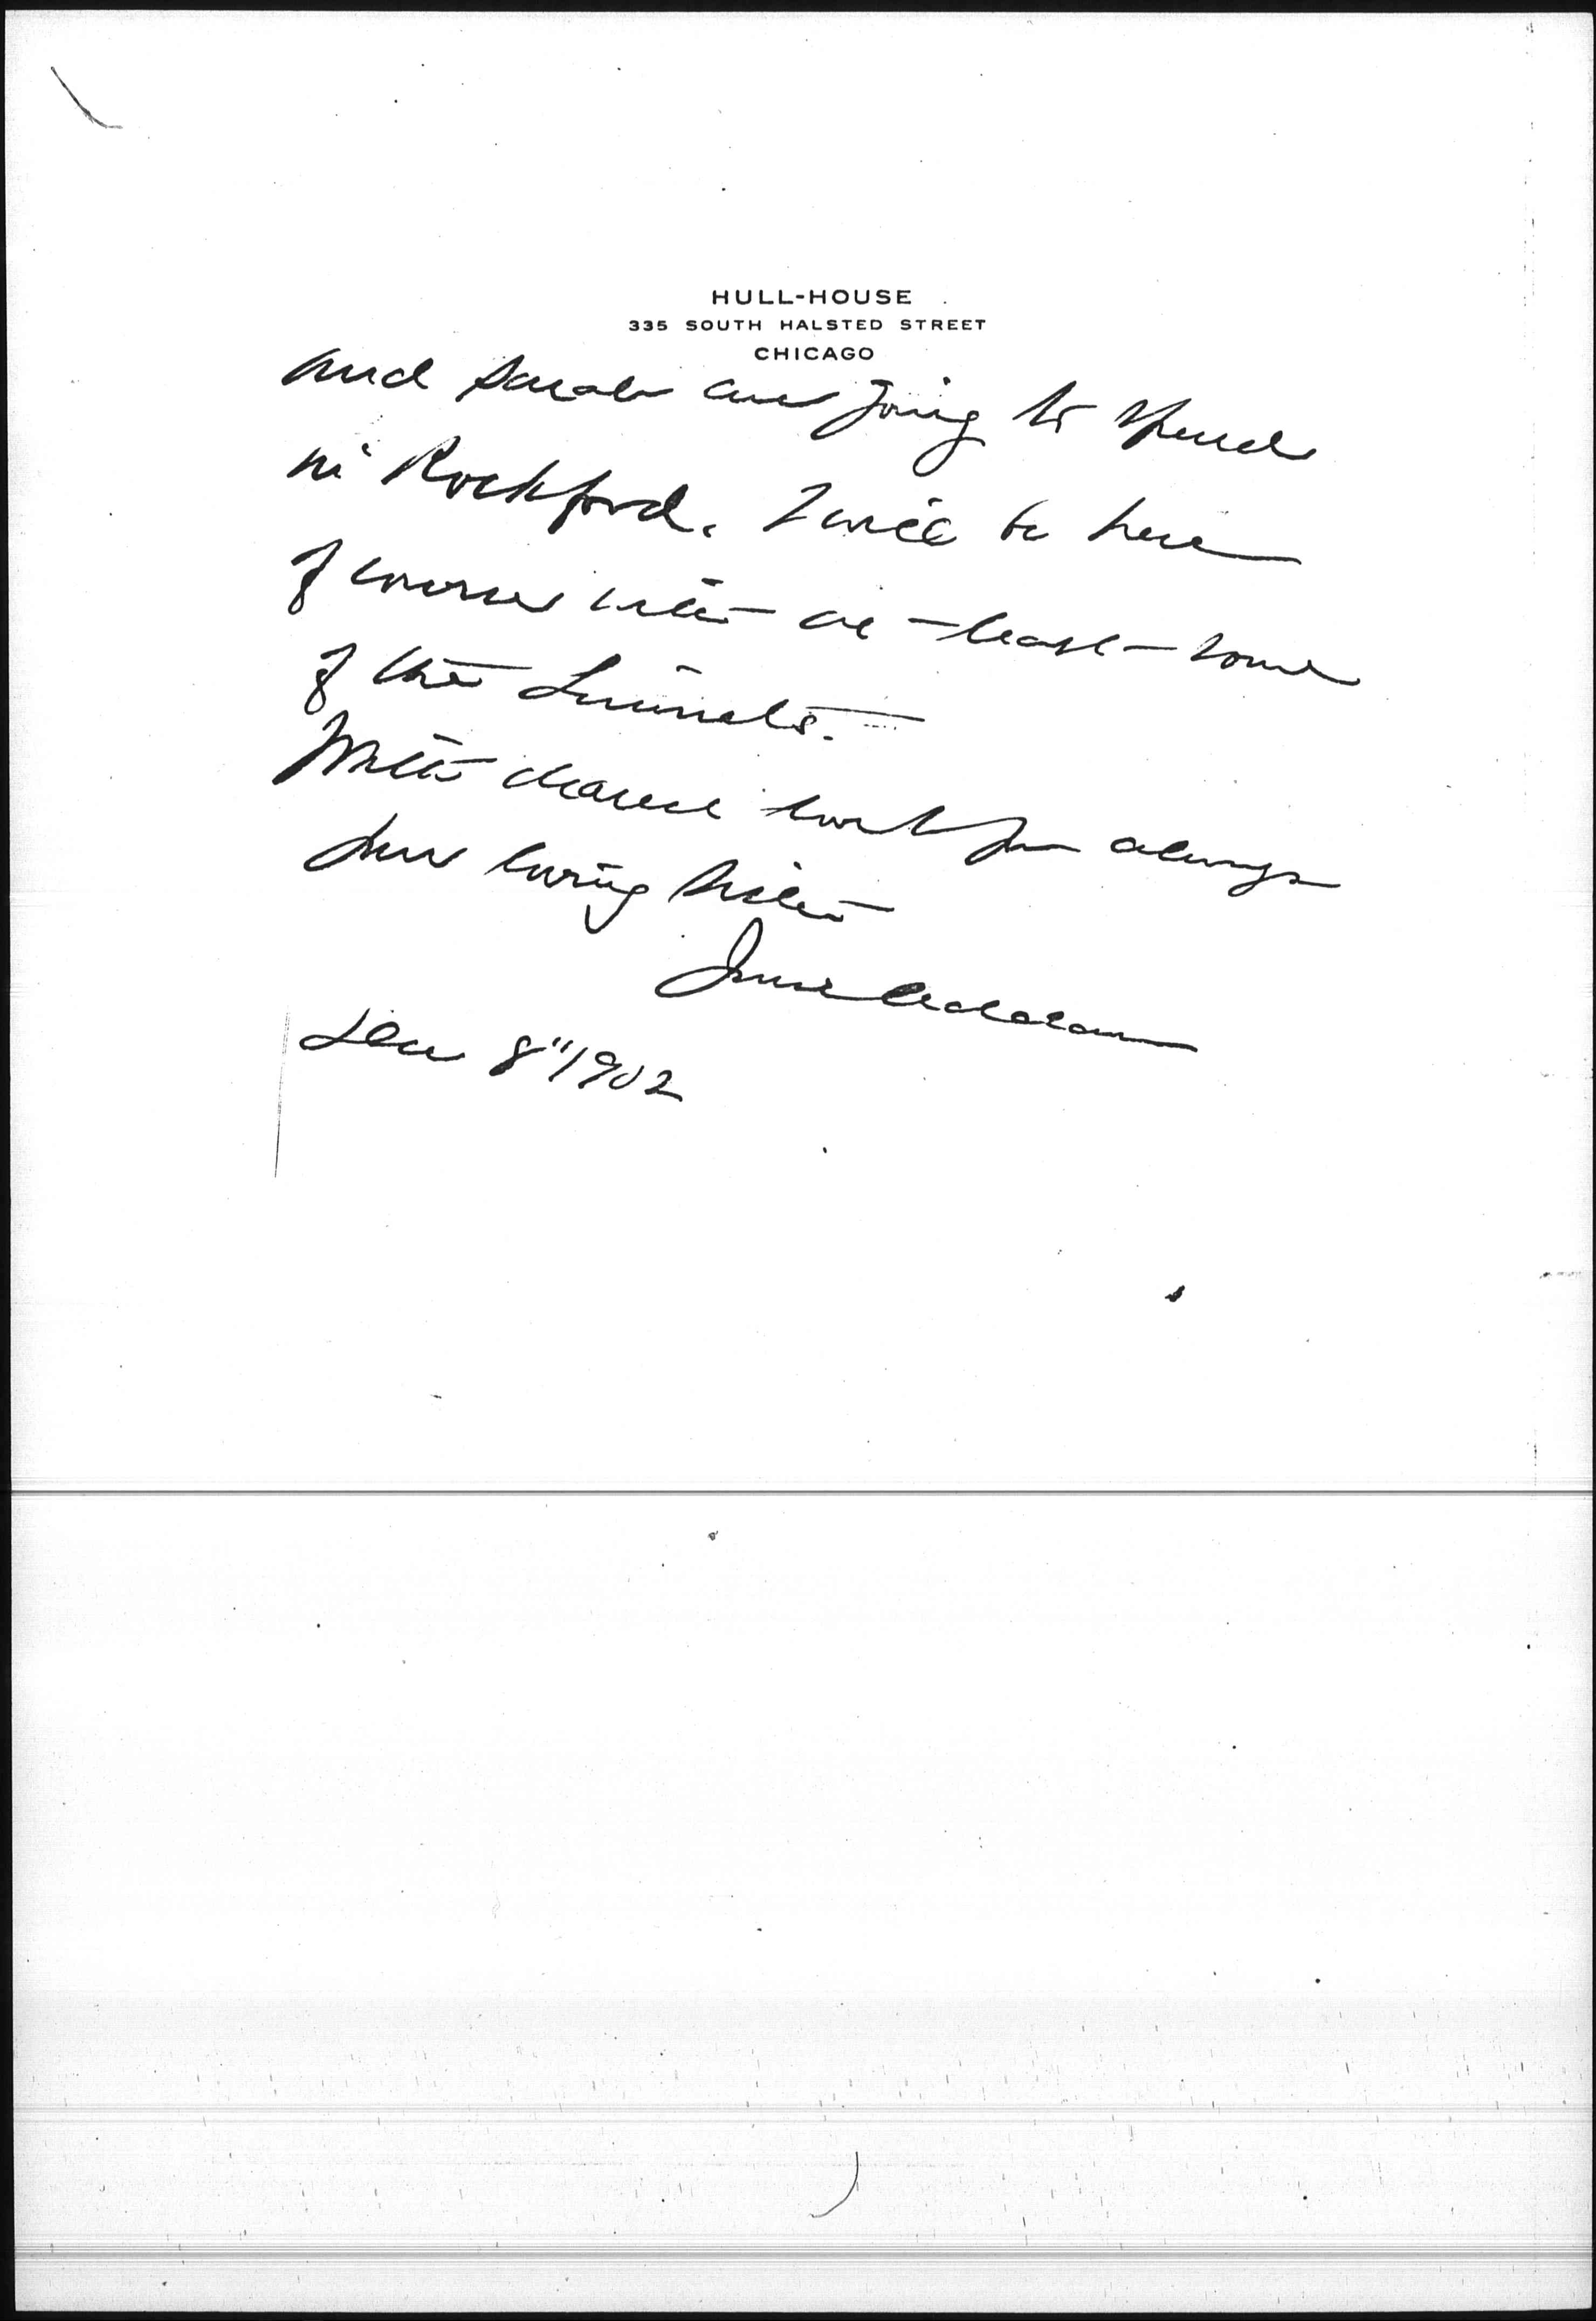 HULL-HOUSE
335 SOUTH HALSTED STREET
CHICAGO
and Sarah are going to spend
in Rockford. I will be here
of course with at least some
of the Linnets.
With dearest love I am always
Your loving sister
Jane Addams
Dec 8" 1902